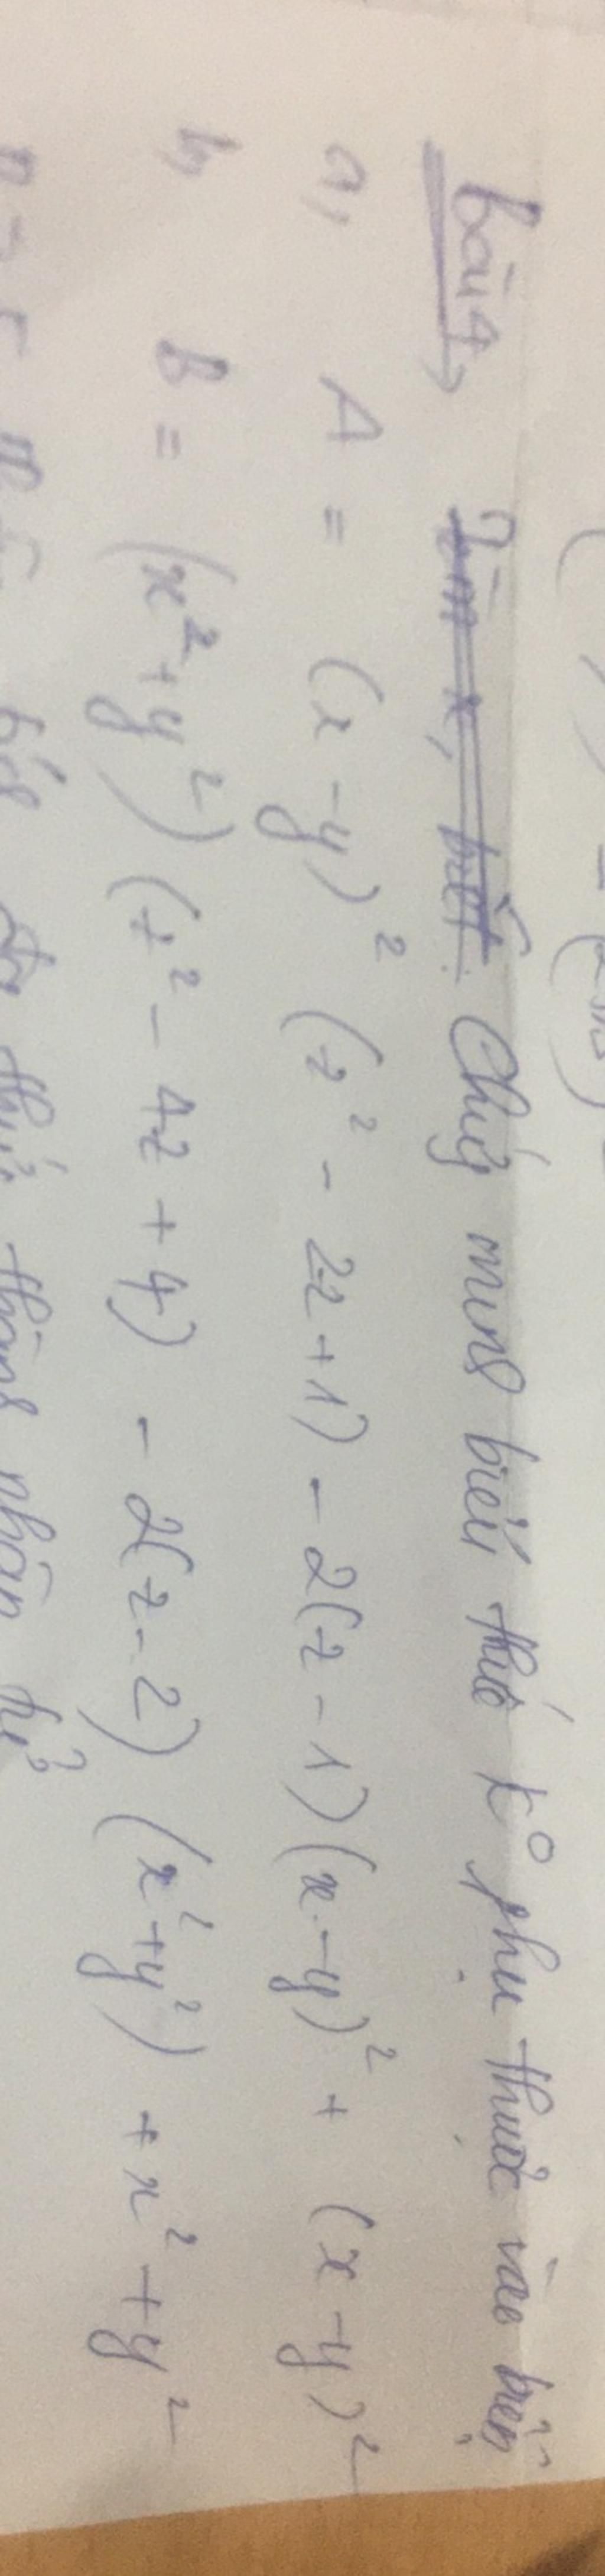 bài 4, Chứg minh biểu thức k° phụ thuộc vào biến
a, A = (x - y)² (z² - 2z + 1) - 2(z - 1)(x - y)² + (x - y)²
b, B = (x² + y²) (z² - 4z + 4) - 2(z - 2) (x² + y²) + x² + y²